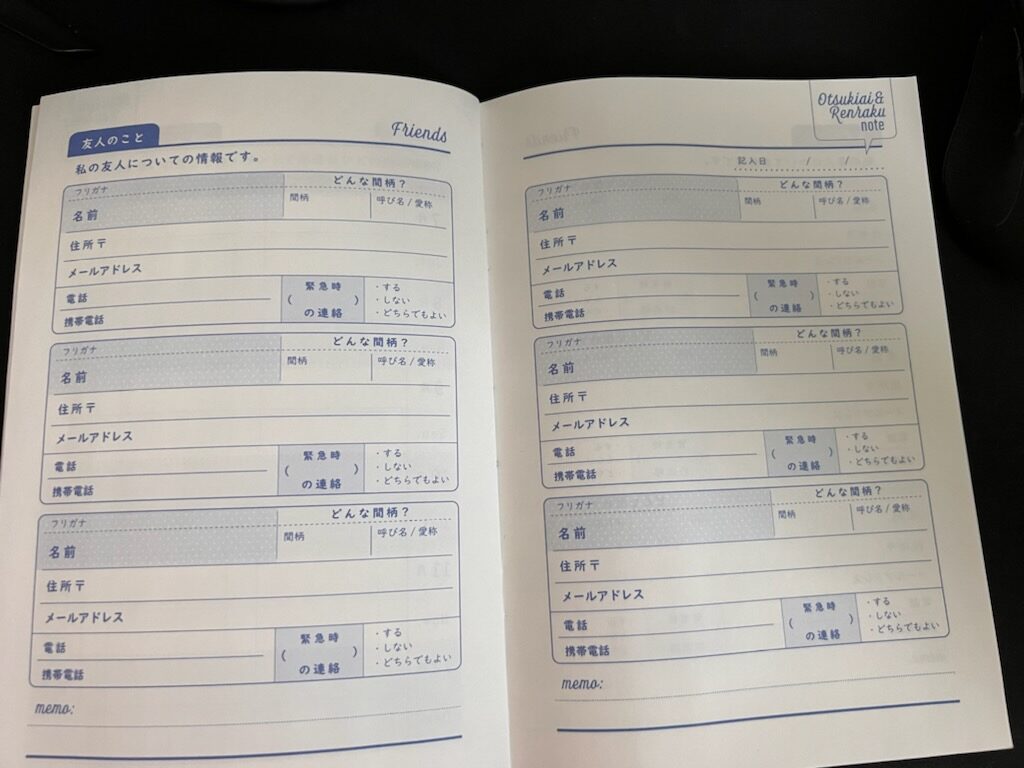 友人のこと
Friends
私の友人についての情報です。
フリガナ どんな間柄？
名前 間柄 呼び名 / 愛称
住所〒
メールアドレス
電話 緊急時 ・する
( ) ・しない
携帯電話 の連絡 ・どちらでもよい
フリガナ どんな間柄？
名前 間柄 呼び名 / 愛称
住所〒
メールアドレス
電話 緊急時 ・する
( ) ・しない
携帯電話 の連絡 ・どちらでもよい
フリガナ どんな間柄？
名前 間柄 呼び名 / 愛称
住所〒
メールアドレス
電話 緊急時 ・する
( ) ・しない
携帯電話 の連絡 ・どちらでもよい
memo:
Otsukiai &
Renraku
note
記入日 / /
フリガナ どんな間柄？
名前 間柄 呼び名 / 愛称
住所〒
メールアドレス
電話 緊急時 ・する
( ) ・しない
携帯電話 の連絡 ・どちらでもよい
フリガナ どんな間柄？
名前 間柄 呼び名 / 愛称
住所〒
メールアドレス
電話 緊急時 ・する
( ) ・しない
携帯電話 の連絡 ・どちらでもよい
フリガナ どんな間柄？
名前 間柄 呼び名 / 愛称
住所〒
メールアドレス
電話 緊急時 ・する
( ) ・しない
携帯電話 の連絡 ・どちらでもよい
memo: